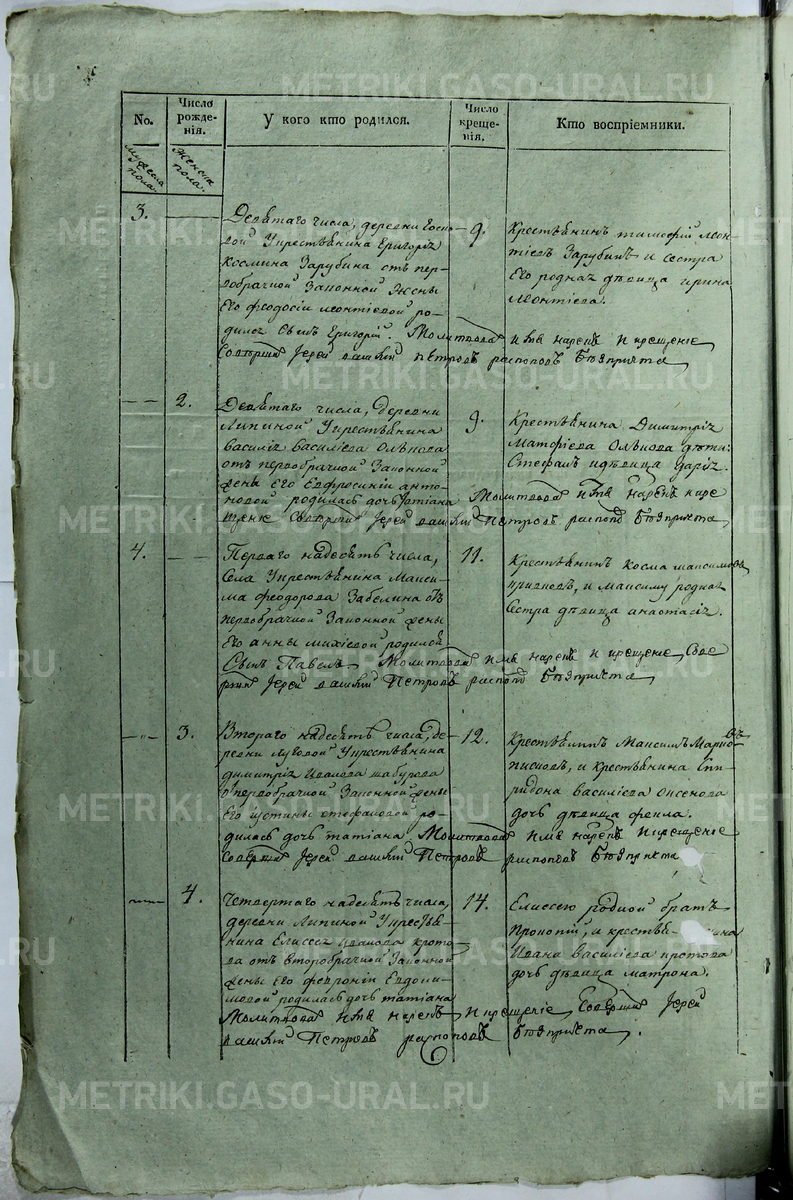 No.
Число рожде-нія.
У кого кто родился.
Число креще-нія.
Кто воспріемники.
Мужеска пола.
Женска пола.
3.
Девѣтаго числа, деревни
вой Укрестьянина Григоріѣ
Космина Зарубина отъ пер-
вобрачной Законной Жены
Его Феодосіи Леонтіевой ро-
дился Сынъ Григорій. Молитвовалъ имя нарекъ и крещеніе
Совершилъ Іерей Петровъ распоповъ
9.
Крестьянинъ Тимофій Леон-
тіевъ Зарубинъ и сестра
Его роднаѣ дѣвица Ирина
Леонтіева.
2.
Девѣтаго числа, Деревни
Липиной Укрестьянина
Василіѣ Василіева
отъ первобрачной Законной
жены Его Евфросиніи Анто-
новой родилась дочь Татіана Молитвовалъ имя нарекъ и кре
щеніе Совершилъ Іерей Петровъ распоповъ
9.
Крестьянина Димитріѣ
Матфіева дѣти:
Стефанъ и дѣвица Даріѣ.
4.
Перваго надесѣть числа,
Села Укрестьянина Макси-
ма Феодорова Забелина отъ
первобрачной Законной жены
Его Анны Михіевой родился
Сынъ Павелъ. Молитвовалъ имя нарекъ и крещеніе Сове
ршилъ Іерей Петровъ распоповъ
11.
Крестьянинъ Косма Максимовъ
и Максиму роднаѣ
Сестра дѣвица Анастасіѣ.
3.
Втораго надесѣть числа, де-
ревни Луговой Укрестьянина
Димитріѣ Иванова Шабурова
о первобрачной Законной жены
Его Устины Стефановой ро-
дилась дочь Татіана Молитвовалъ имя нарекъ и крещеніе
Совершилъ Іерей Петровъ распоповъ
12.
Крестьянинъ Максимъ
и крестьянина Спи-
ридона Василіева Аксенова
дочь дѣвица Фекла.
4.
Четвертаго надесѣть числа,
деревни Липиной Укрестья-
нина Елисеѣ Иванова Крото-
ва отъ второбрачной Законной
жены Его Февроніи Евдоки-
мовой родилась дочь Татіана
Молитвовалъ имя нарекъ и крещеніе Совершилъ Іерей
Петровъ распоповъ
14.
Елиссею родной братъ
Прокопій, и крестьянина
Ивана Василіева Кротова
дочь дѣвица Матрона.
METRIKI.GASO-URAL.RU